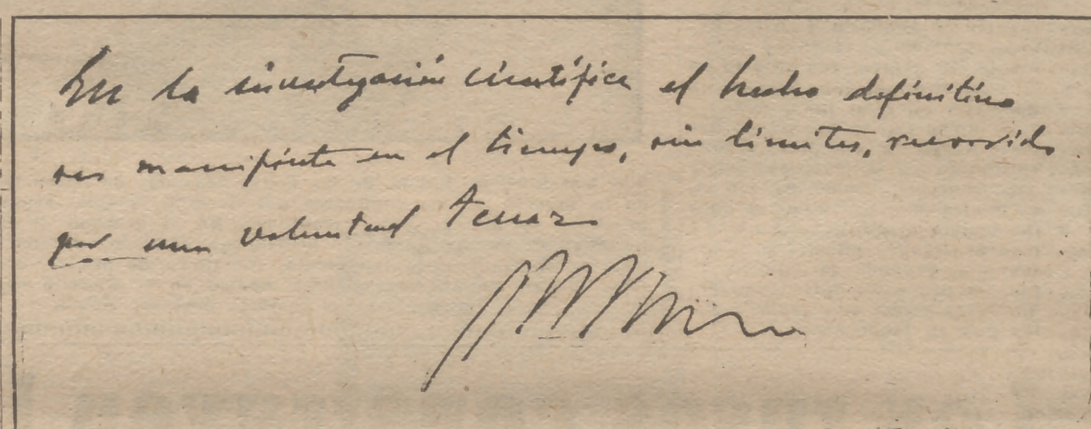 En la investigación científica el hecho definitivo
se manifiesta en el tiempo, sin límites, recorrido
por una voluntad tenaz